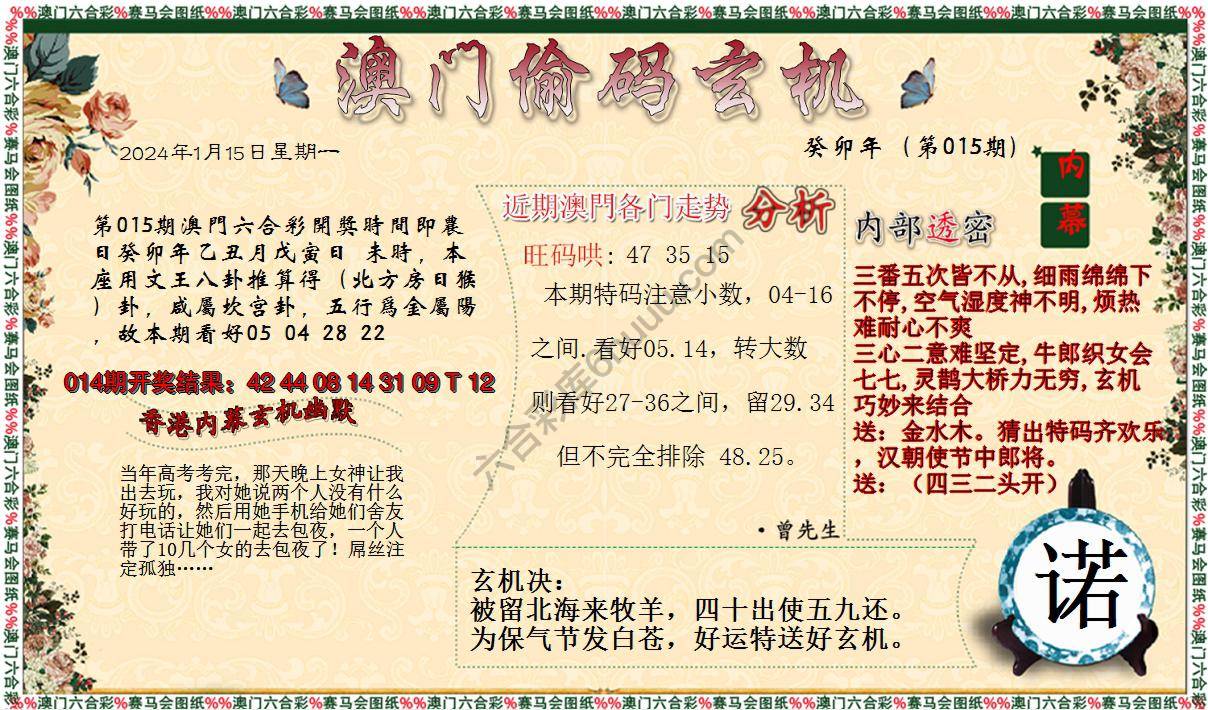 %%澳门六合彩%赛马会图纸%%澳门六合彩%赛马会图纸%%澳门六合彩%赛马会图纸%%澳门六合彩%赛马会图纸
澳门偷码玄机
2024年1月15日星期一
癸卯年（第015期）
内幕
第015期澳門六合彩開獎時間即農
日癸卯年乙丑月戊寅日 未時，本
座用文王八卦推算得（北方房日猴
）卦，咸屬坎宫卦，五行爲金屬陽
，故本期看好05 04 28 22
014期开奖结果：42 44 06 14 31 09 T 12
香港内幕玄机幽默
当年高考考完，那天晚上女神让我
出去玩，我对她说两个人没有什么
好玩的，然后用她手机给她们舍友
打电话让她们一起去包夜，一个人
带了10几个女的去包夜了！屌丝注
定孤独……
近期澳門各门走势 分析
旺码哄：47 35 15
本期特码注意小数，04-16
之间.看好05.14，转大数
则看好27-36之间，留29.34
但不完全排除 48.25。
·曾先生
内部透密
三番五次皆不从,细雨绵绵下
不停,空气湿度神不明,烦热
难耐心不爽
三心二意难坚定,牛郎织女会
七七,灵鹊大桥力无穷,玄机
巧妙来结合
送：金水木。猜出特码齐欢乐
，汉朝使节中郎将。
送：（四三二头开）
玄机决：
被留北海来牧羊，四十出使五九还。
为保气节发白苍，好运特送好玄机。
诺
%%澳门六合彩%赛马会图纸%%澳门六合彩%赛马会图纸%%澳门六合彩%赛马会图纸%%澳门六合彩%赛马会图纸